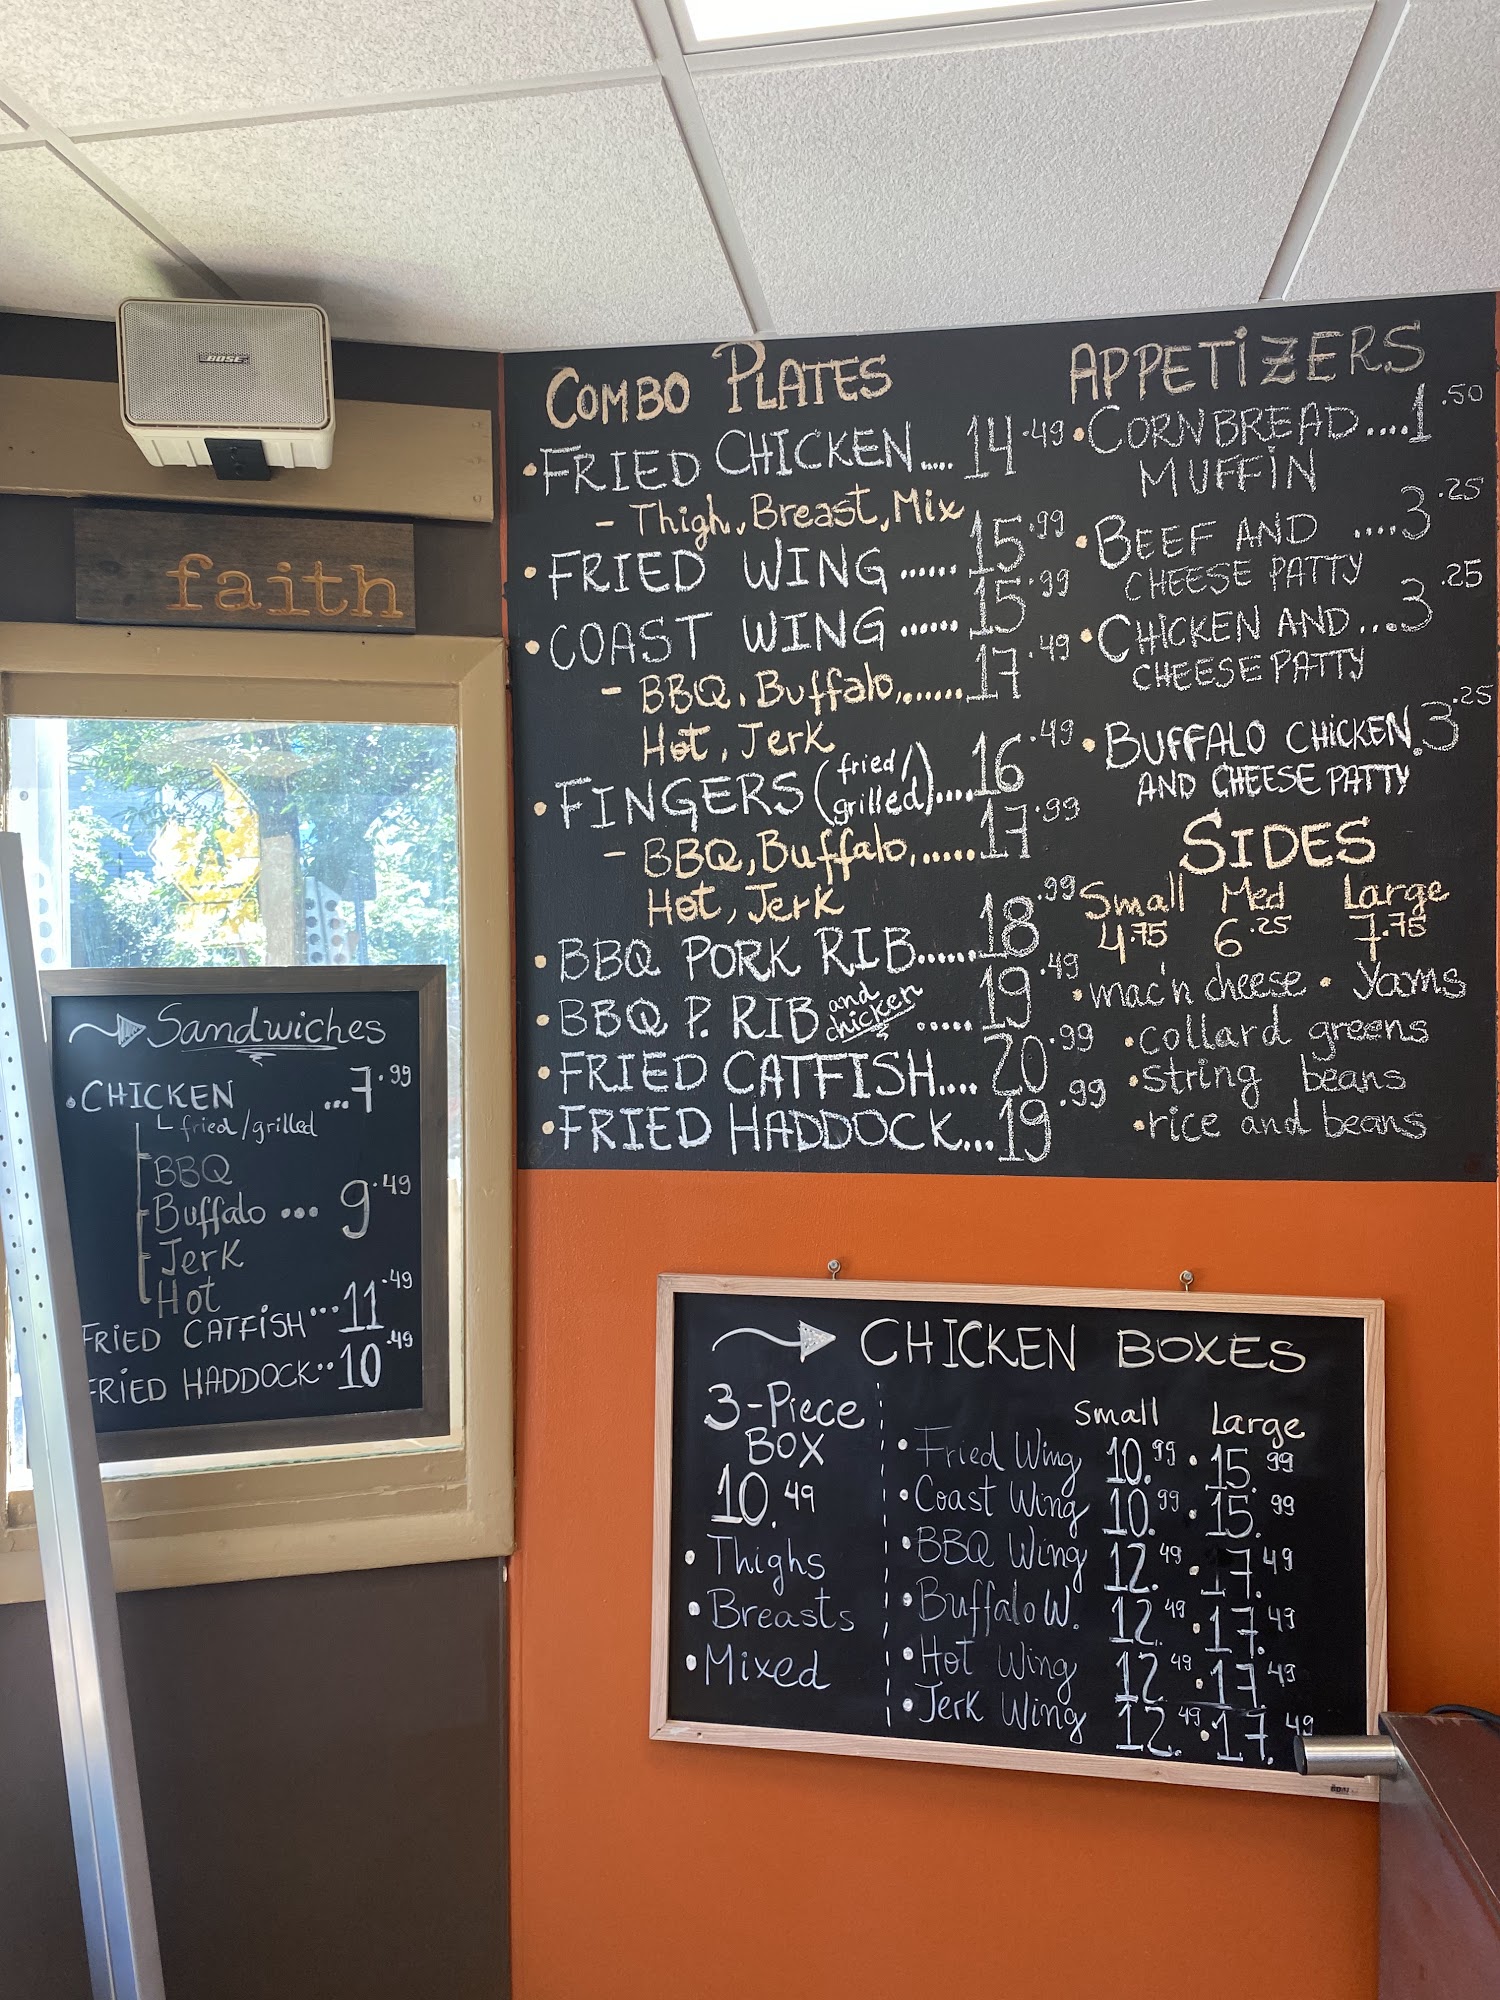 BOSE
faith
Sandwiches
CHICKEN ...7.99
fried/grilled
BBQ
Buffalo ... 9.49
Jerk
Hot
FRIED CATFISH...11.49
FRIED HADDOCK..10.49
COMBO PLATES
• FRIED CHICKEN.... 14.49
- Thigh, Breast, Mix
• FRIED WING ...... 15.99
• COAST WING ...... 15.99
- BBQ, Buffalo,......17.49
Hot, Jerk
• FINGERS (fried/grilled)....16.49
- BBQ, Buffalo,......17.99
Hot, Jerk
• BBQ PORK RIB......18.99
• BBQ P. RIB and chicken .....19.49
• FRIED CATFISH....20.99
• FRIED HADDOCK...19.99
APPETIZERS
• CORNBREAD....1.50
MUFFIN
• BEEF AND ....3.25
CHEESE PATTY
• CHICKEN AND ...3.25
CHEESE PATTY
• BUFFALO CHICKEN.3.25
AND CHEESE PATTY
SIDES
Small Med Large
4.75 6.25 7.75
• mac'n cheese • Yams
• collard greens
• string beans
• rice and beans
CHICKEN BOXES
3-Piece
BOX
10.49
• Thighs
• Breasts
• Mixed
Small Large
• Fried Wing 10.99 • 15.99
• Coast Wing 10.99 • 15.99
• BBQ Wing 12.49 • 17.49
• Buffalo W. 12.49 • 17.49
• Hot Wing 12.49 • 17.49
• Jerk Wing 12.49 • 17.49